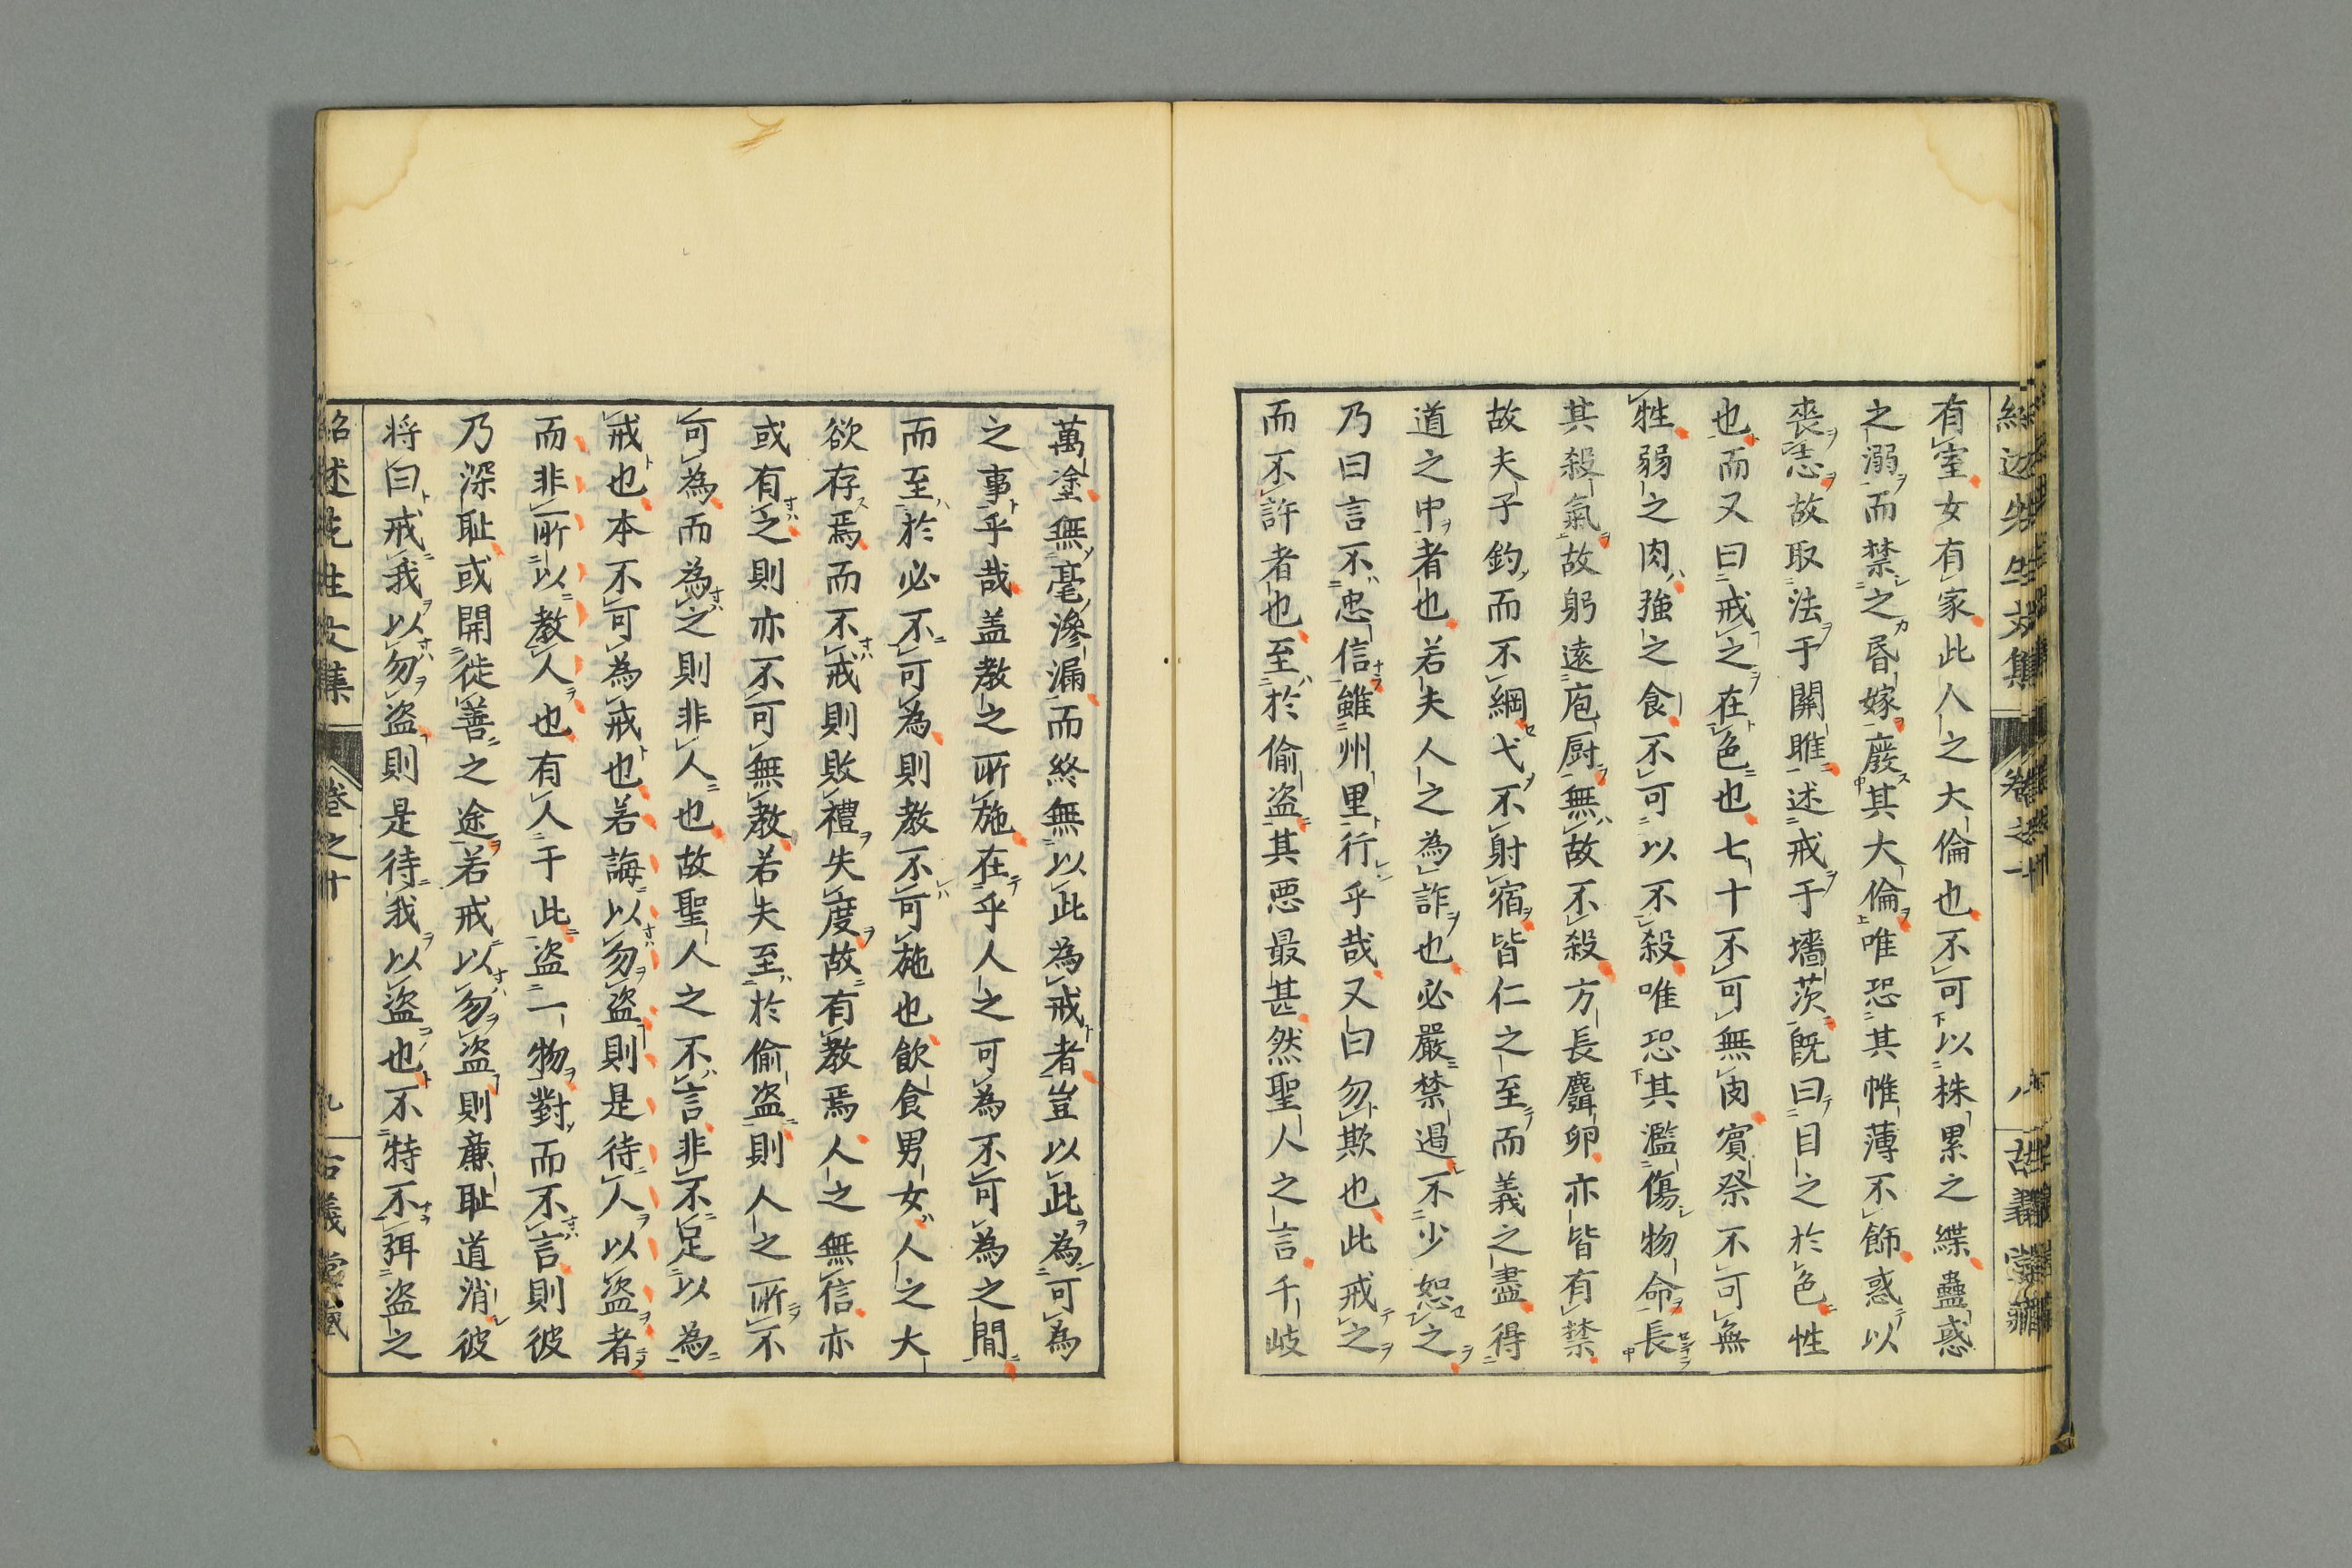 有室女有家此人之大倫也不可以株累之緤蠱惑
之溺而禁之昏嫁廢其大倫唯恐其帷薄不飾惑以
喪志故取法于關雎述戒于墻茨既曰目之於色性
也而又曰戒之在色也七十不可無肉賓祭不可無
牲弱之肉強之食不可以不殺唯恐其濫傷物命長
其殺氣故躬遠庖厨無故不殺方長麛卵亦皆有禁
故夫子釣而不綱弋不射宿皆仁之至而義之盡得
道之中者也若夫人之為詐也必嚴禁遏不少恕之
乃曰言不忠信雖州里行乎哉又曰勿欺也此戒之
而不許者也至於偷盗其悪最甚然聖人之言千岐
萬塗無毫滲漏而終無以此為戒者豈以此為可為
之事乎哉盖教之所施在乎人之可為不可為之間
而至於必不可為則教不可施也飲食男女人之大
欲存焉而不戒則敗禮失度故有教焉人之無信亦
或有之則亦不可無教若夫至於偷盗則人之所不
可為而為之則非人也故聖人之不言非不足以為
戒也本不可為戒也若誨以勿盗則是待人以盗者
而非所以教人也有人于此盗一物對而不言則彼
乃深耻或開徙善之途若戒以勿盗則亷耻道消彼
将曰戒我以勿盗則是待我以盗也不特不弭盗之
紹述先生文集
卷之十
九
古義堂藏